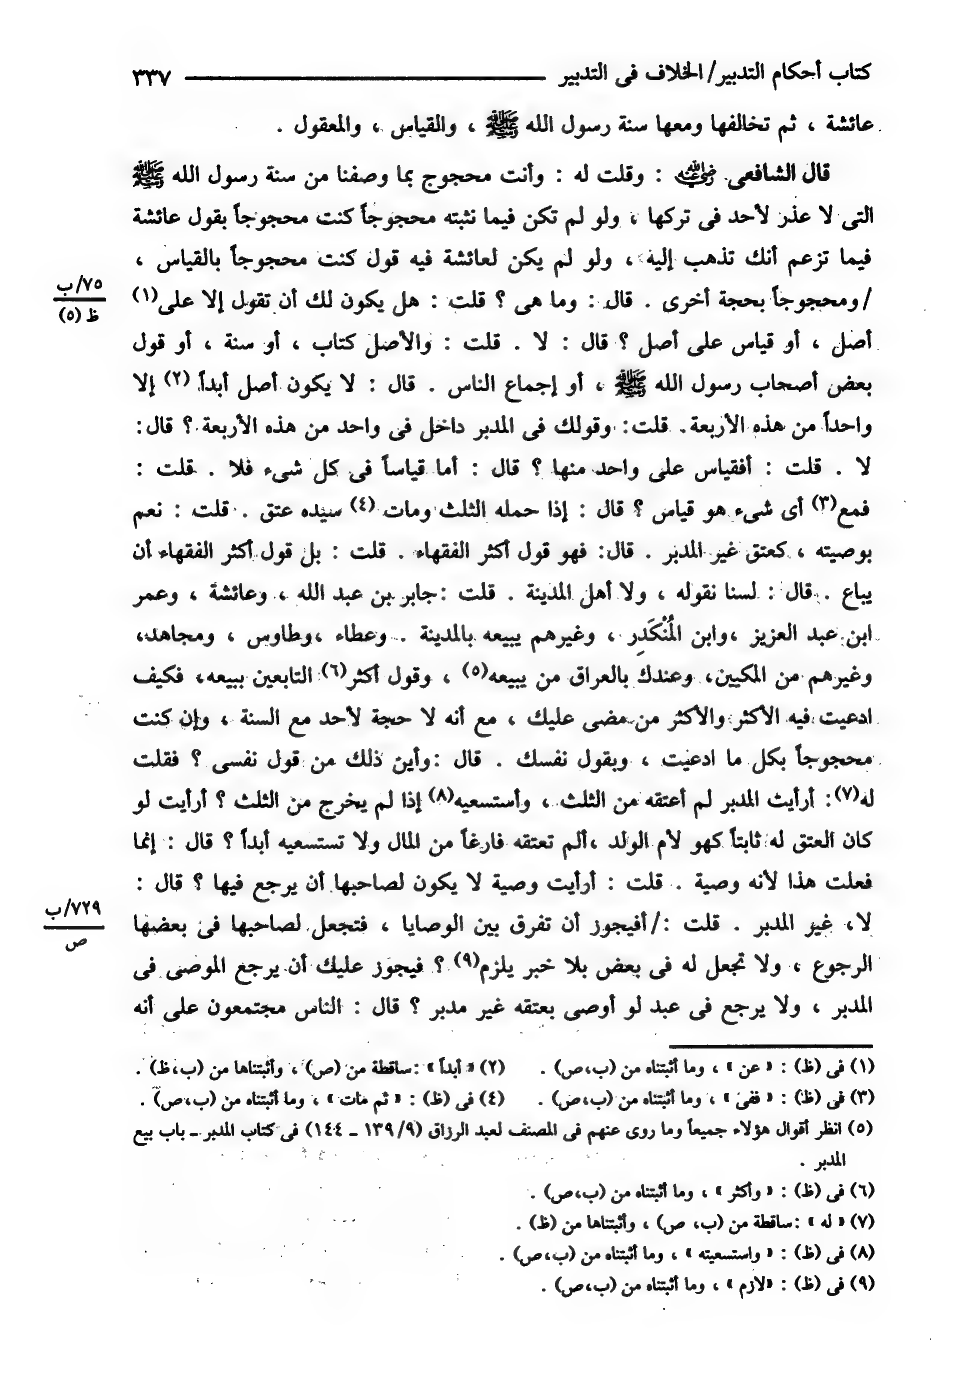 كتاب أحكام التدبير/ الخلاف فى التدبير ٣٣٧
عائشة ، ثم تخالفها ومعها سنة رسول الله ﷺ ، والقياس ، والمعقول .
قال الشافعى رضي الله عنه : وقلت له : وأنت محجوج بما وصفنا من سنة رسول الله ﷺ
التى لا عذر لأحد فى تركها ، ولو لم تكن فيما نثبته محجوجاً كنت محجوجاً بقول عائشة
فيما تزعم أنك تذهب إليه ، ولو لم يكن لعائشة فيه قول كنت محجوجاً بالقياس ،
٧٥/ب
ظ (٥)
/ ومحجوجاً بحجة أخرى . قال : وما هى ؟ قلت : هل يكون لك أن تقول إلا على(١)
أصل ، أو قياس على أصل ؟ قال : لا . قلت : والأصل كتاب ، أو سنة ، أو قول
بعض أصحاب رسول الله ﷺ ، أو إجماع الناس . قال : لا يكون أصل أبداً (٢) إلا
واحداً من هذه الأربعة. قلت: وقولك فى المدبر داخل فى واحد من هذه الأربعة ؟ قال:
لا . قلت : أفقياس على واحد منها ؟ قال : أما قياساً فى كل شىء فلا . قلت :
فمع(٣) أى شىء هو قياس ؟ قال : إذا حمله الثلث ومات (٤) سيده عتق . قلت : نعم
بوصيته ، كعتق غير المدبر . قال: فهو قول أكثر الفقهاء . قلت : بل قول أكثر الفقهاء أن
يباع . قال : لسنا نقوله ، ولا أهل المدينة . قلت :جابر بن عبد الله ، وعائشة ، وعمر
ابن عبد العزيز ،وابن المُنْكَدِر ، وغيرهم يبيعه بالمدينة . وعطاء ،وطاوس ، ومجاهد،
وغيرهم من المكيين، وعندك بالعراق من يبيعه(٥) ، وقول أكثر(٦) التابعين ببيعه، فكيف
ادعيت فيه الأكثر والأكثر من مضى عليك ، مع أنه لا حجة لأحد مع السنة ، وإن كنت
محجوجاً بكل ما ادعيت ، وبقول نفسك . قال :وأين ذلك من قول نفسى ؟ فقلت
له(٧): أرأيت المدبر لم أعتقه من الثلث ، وأستسعيه(٨) إذا لم يخرج من الثلث ؟ أرأيت لو
كان العتق له ثابتاً كهو لأم الولد ،ألم تعتقه فارغاً من المال ولا تستسعيه أبداً ؟ قال : إنما
فعلت هذا لأنه وصية . قلت : أرأيت وصية لا يكون لصاحبها أن يرجع فيها ؟ قال :
٧٢٩/ب
ص
لا، غير المدبر . قلت :/ أفيجوز أن تفرق بين الوصايا ، فتجعل لصاحبها فى بعضها
الرجوع ، ولا تجعل له فى بعض بلا خبر يلزم(٩) ؟ فيجوز عليك أن يرجع الموصى فى
المدبر ، ولا يرجع فى عبد لو أوصى بعتقه غير مدبر ؟ قال : الناس مجتمعون على أنه
(١) فى (ظ) : « عن » ، وما أثبتناه من (ب،ص) . (٢) « أبداً » :ساقطة من (ص) ، وأثبتناها من (ب،ظ) .
(٣) فى (ظ) : « ففى » ، وما أثبتناه من (ب،ص) . (٤) فى (ظ) : « ثم مات » ، وما أثبتناه من (ب،ص) .
(٥) انظر أقوال هؤلاء جميعاً وما روى عنهم فى المصنف لعبد الرزاق (٩/ ١٣٩ ـ ١٤٤) فى كتاب المدبر ـ باب بيع
المدبر .
(٦) فى (ظ) : « وأكثر » ، وما أثبتناه من (ب،ص) .
(٧) « له » :ساقطة من (ب، ص) ، وأثبتناها من (ظ) .
(٨) فى (ظ) : « واستسعيته » ، وما أثبتناه من (ب،ص) .
(٩) فى (ظ) : «لازم » ، وما أثبتناه من (ب،ص) .